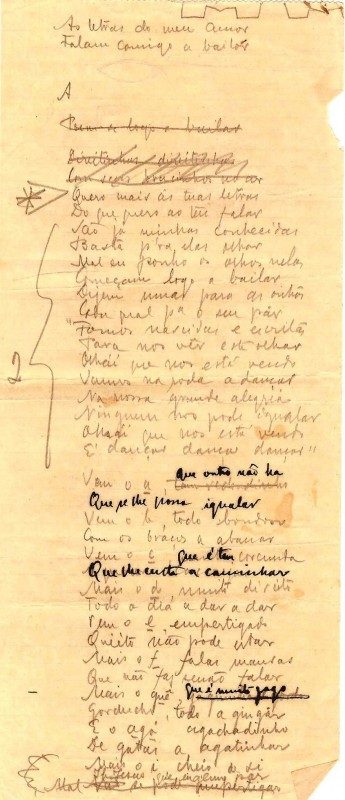 As letras do meu amor
Falam comigo a bailar
A
Põem-se logo a bailar
Direitinhas direitinhas
Com seus bracinhos no ar
Quero mais às tuas letras
Do que quero ao teu falar
São já minhas conhecidas
Basta p'ra elas olhar
Mal eu ponho os olhos nelas
Começam logo a bailar
Dizem umas para as outras
Cada qual pa o seu par
"Fomos nascidas e
Para nos ver este olhar
Olhai que nos está vendo
Vamos na roda a dançar
Na nossa grande alegria
Ninguem nos pode igualar
Olhai que nos está vendo
E' dançar dançar dançar"
Vem o a que outro não ha
Que se lhe possa igualar
Vem o b, todo
Com os braços a abanar
Vem o c que é tão corcunda
Que lhe custa a caminhar
Mais o d muito direito
Todo o dia a dar a dar
Vem o e empertigado
Quieto não pode estar
Mais o f falas mansas
Que não faz senão falar
Mais o guê que é muito gago
Gorducho, todo a gingar
E o agá agachadinho
De gatas a agatinhar
Mais o i cheio de si
Mal se pode empertigar